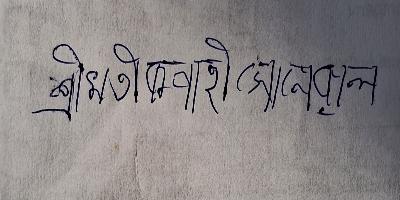 শ্ৰীমতী ৰুপাহী সোনোৱাল